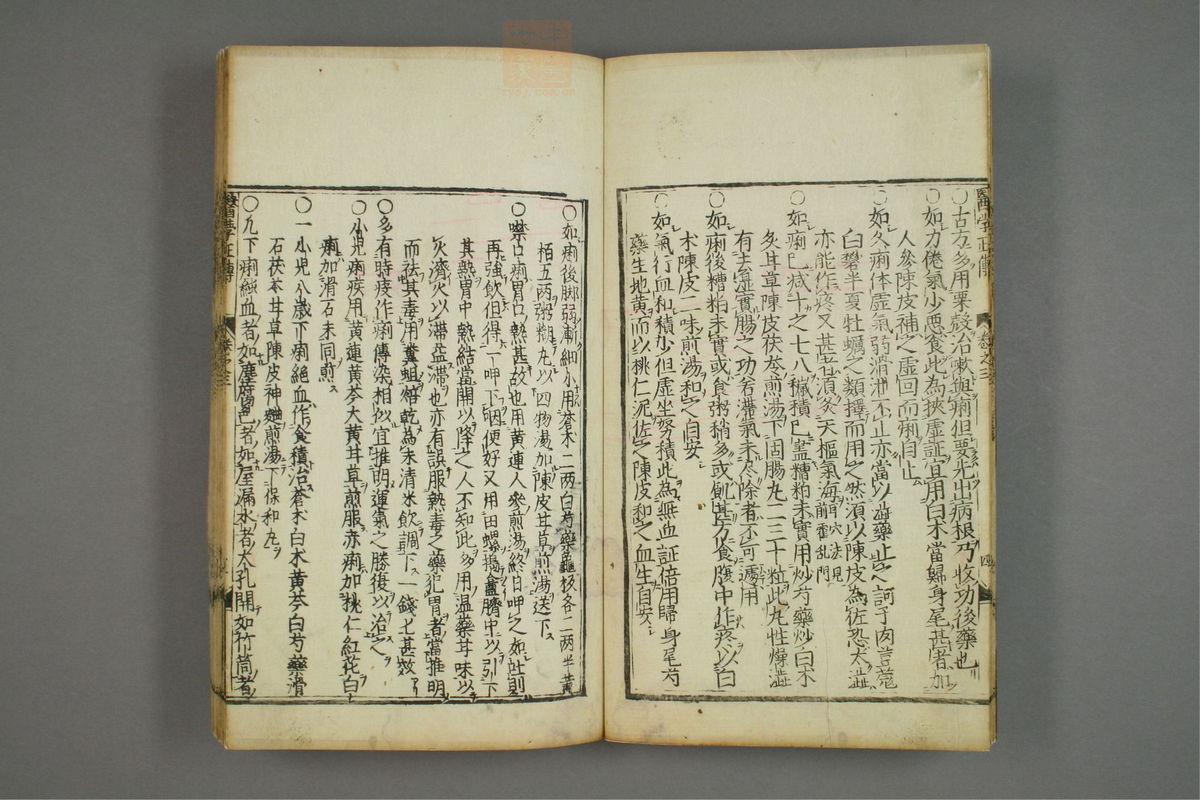 〇古方多用粟殼治嗽與痢但要先出病根乃收功後藥也
〇如力倦氣少惡食此為挾虛証宜用白术當歸身尾甚者加
人參陳皮補之虛回而痢自止
〇如久痢体虛氣弱滑泄不止亦當以澁藥止之訶子肉豆蔻
白礬半夏牡蠣之類擇而用之然須以陳皮為佐恐太澁
亦能作疼又甚者須灸天樞氣海前穴法見前霍乱門
〇如痢已减十之七八穢積已盡糟粕未實用炒芍藥炒白术
炙甘草陳皮茯苓煎湯下固腸丸二三十粒此丸性燥澁
有去湿實腸之功若滯氣未尽除者不可遽用
〇如痢後糟粕未實或食粥稍多或飢甚方食腹中作疼以白
术陳皮二味煎湯和之自安
〇如氣行血和積少但虛坐努積此為無血証倍用歸身尾芍
藥生地黄而以桃仁泥佐之陳皮和之血生自安
〇如痢後脚弱漸細小用蒼术二两白芍藥龜板各二两半黄
栢五两粥糊丸以四物湯加陳皮甘草煎湯送下
〇噤口痢胃口熱甚故也用黄連人參煎湯終日呷之如吐則
再強飲但得一呷下咽便好又用田螺搗盦臍中以引下
其熱胃中熱結當開以降之人不知此多用温藥甘味以
火濟火以滯益滯也亦有誤服熱毒之藥犯胃者當推明
而祛其毒用糞蛆焙乾為末清米飲調下一錢匕甚效
〇多有時疫作痢傳染相似宜推明運氣之勝復以治之
〇小兒痢疾用黄連黄芩大黄甘草煎服赤痢加桃仁紅花白
痢加滑石末同煎
〇一小兒八歲下痢純血作食積治蒼术白术黄芩白芍藥滑
石茯苓甘草陳皮神麯煎湯下保和丸
〇凡下痢純血者如塵腐色者如屋漏水者大孔開如竹筒者
醫學正傳
卷之三